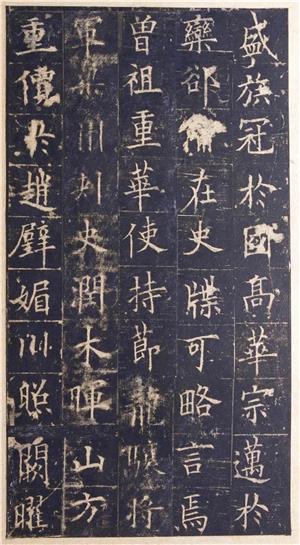 盛族冠於國高華宗邁於
欒郤備在史牒可略言焉
曾祖重華使持節龍驤將
軍梁州刺史潤木暉山方
重價於趙璧媚川照闕曜